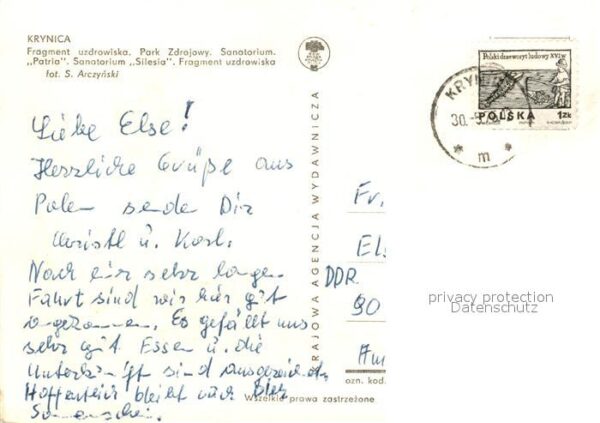 KRYNICA
Fragment uzdrowiska. Park Zdrojowy. Sanatorium.
„Patria". Sanatorium „Silesia". Fragment uzdrowiska
fot. S. Arczyński
Liebe Else!
Herzliche Grüße aus
Polen sende Dir
Christl u. Karl.
Nach einer sehr langen
Fahrt sind wir hier gut
angekommen. Es gefällt uns
sehr gut Essen u. die
Unterkunft sind ausgezeichnet.
Hoffentlich bleibt auch der
Sonnenschein.
KRAJOWA AGENCJA WYDAWNICZA
Polski drzeworyt ludowy XVI w
POLSKA 1 ZŁ
KRYNI
30.-9.
m
Fr.
Els
DDR
90
ozn. kod.
Wszelkie prawa zastrzeżone
privacy protection
Datenschutz